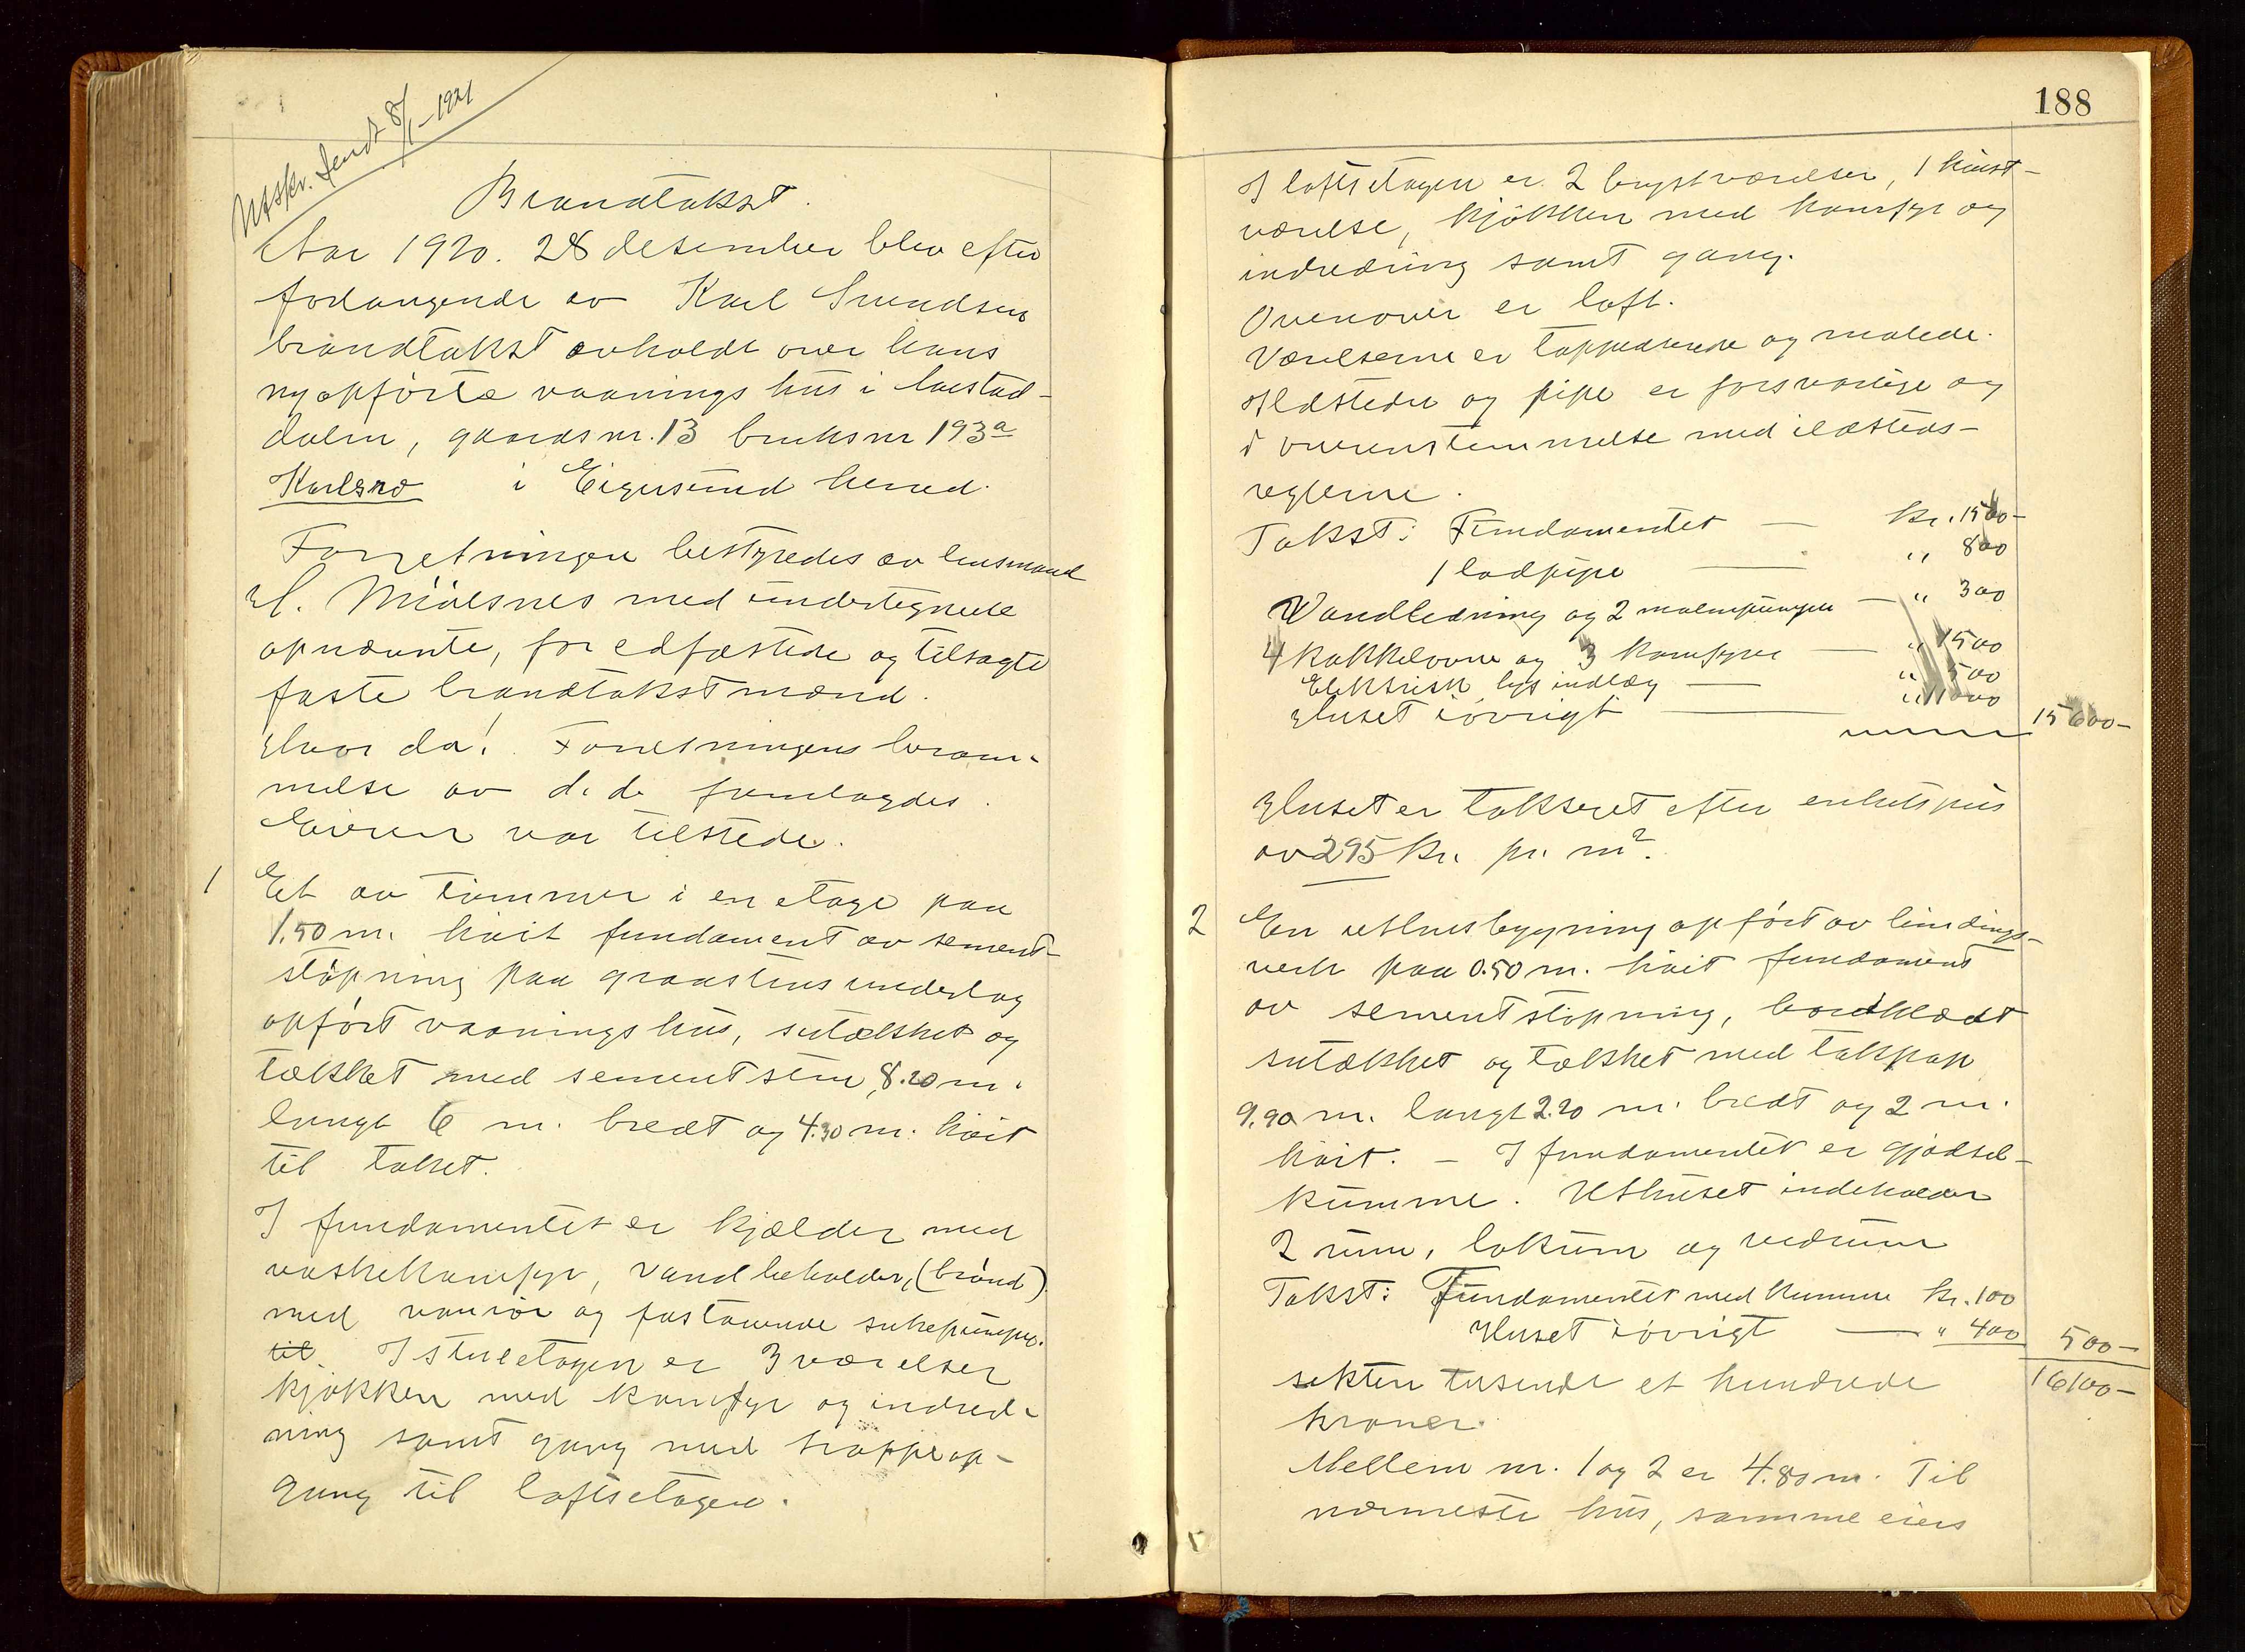 Utskr. sendt 8/1-1921
Brandtakst.
Aar 1920. 28 desember blev efter
forlangende av Karl Svendsen
brandtakst avholdt over hans
nyopførte vaaningshus i Aarstad-
dalen, gaardsnr. 13 bruksnr 193a
Karlsro i Eigersund herred.
Forretningen bestyredes av lensmand
H. Mjølsnes med undertegnede
opnævnte, for edfæstede og tilsagte
faste brandtakstmænd.
Hvor da! Forretningens beram-
melse av d.d. fremlagdes.
Eieren var tilstede.
1 Et av tømmer i en etage paa
1.50 m. høit fundament av sement-
støpning paa graastens underlag
opført vaaningshus, sutækket og
tækket med sementsten, 8.20 m.
langt 6 m. bredt og 4.30 m. høit
til taket.
I fundamentet er kjælder med
vaskekamfyr, vandbeholder, (brønd)
med vandrør og fastaaende sukepumpe.
til. I stueetagen er 3 værelser
kjøkken med kamfyr og indred-
ning samt gang med trappeop-
gang til loftsetagen.
188
I loftsetagen er 2 brystværelser, 1 kvist-
værelse, kjøkken med kamfyr og
indredning samt gang.
Ovenover er loft.
Værelserne er tappedserede og malede.
Ildsteder og pipe er forsvarlige og
i overenstemmelse med ildsteds-
reglerne.
Takst: Fundamentet — Kr. 1500-
1 ladpipe — " 800
Vandledning og 2 malmpumper — " 300
4 kakkelovne og 3 kamfyrer — " 1500
Elektrisk lys indlæg — " 500
Huset iøvrigt — " 11000
15600-
Huset er taksert efter enhetspris
av 295 Kr. pr. m2.
2 En uthusbygning opført av bindings-
verk paa 0.50 m. høit fundament
av sementstøpning, bordklædt
sutækket og tækket med takpap
9.90 m. langt 2.20 m. bredt og 2 m.
høit. – I fundamentet er gjødsel-
kumme. Uthuset indeholder
2 rum, lokum og vedrum
Takst: Fundamentet med kumme Kr. 100
Huset iøvrigt — " 400 500-
seksten tusende et hundrede 16100-
kroner.
Mellem nr. 1 og 2 er 4.80 m. Til
nærmeste hus, samme eiers